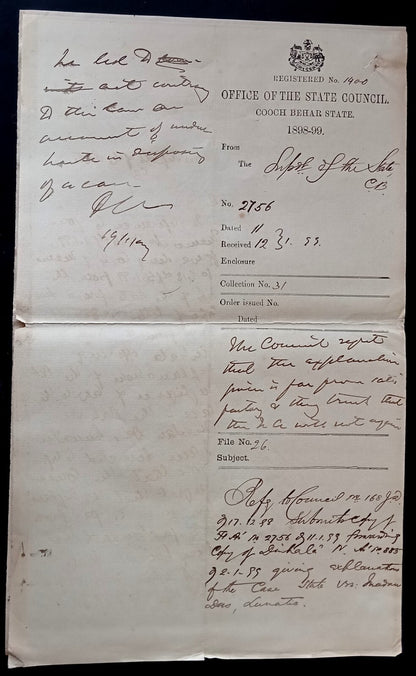 REGISTERED No. 1400
OFFICE OF THE STATE COUNCIL.
COOCH BEHAR STATE.
1898-99.
From
The Supdt. of the State
C.B.
No. 2756
Dated 11
Received 12 } 1. 99.
Enclosure
Collection No. 31
Order issued No.
Dated
The Council regret
that the explanation
given is far from satis
factory & they trust that
the will not again
File No. 26.
Subject.
Refg. to Council No. 168
of 17.12.98 Submits copy of
No. 2756 of 11.1.99 forwarding
copy of No. 885
of 2-1-99 giving explanation
of the Case State Vrs. Madan
Das, Lunatic.
be led to
act contrary
to the law on
account of undue
haste in disposing
of a case